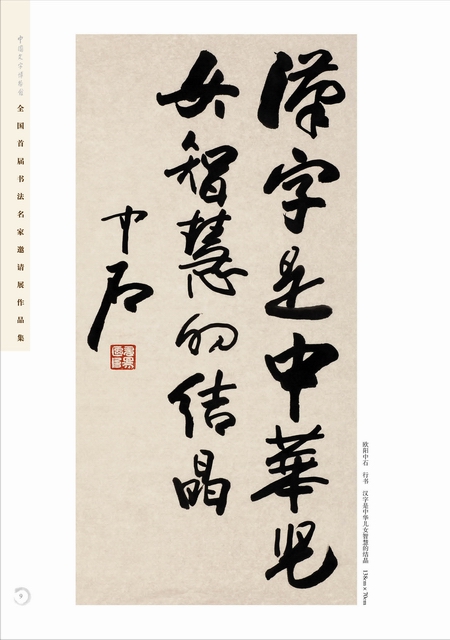 漢字是中華兒
女智慧的結晶
中石
欧阳中石 行书 汉字是中华儿女智慧的结晶 138cm×70cm
中国文字博物馆
全国首届书法名家邀请展作品集
9